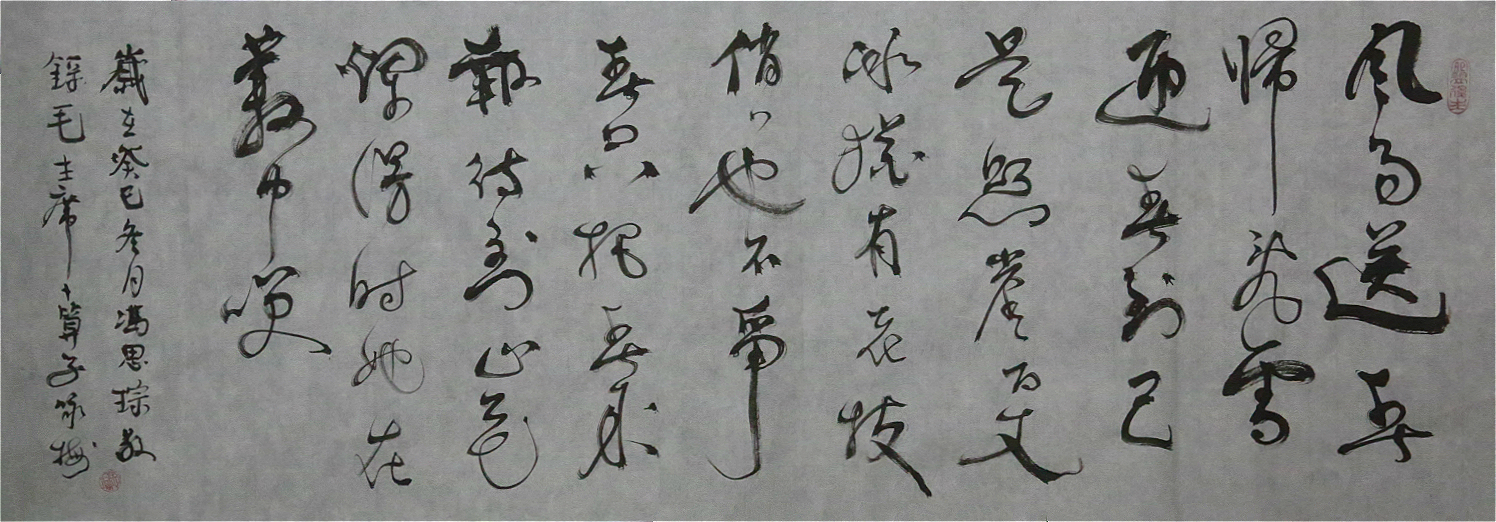 风雨送春
歸飛雪
迎春到已
是悬崖百丈
冰猶有花枝
俏俏也不爭
春只把春來
報待到山花
爛漫时她在
叢中咲
歲在癸巳冬月馮思琮敬
錄毛主席卜算子咏梅